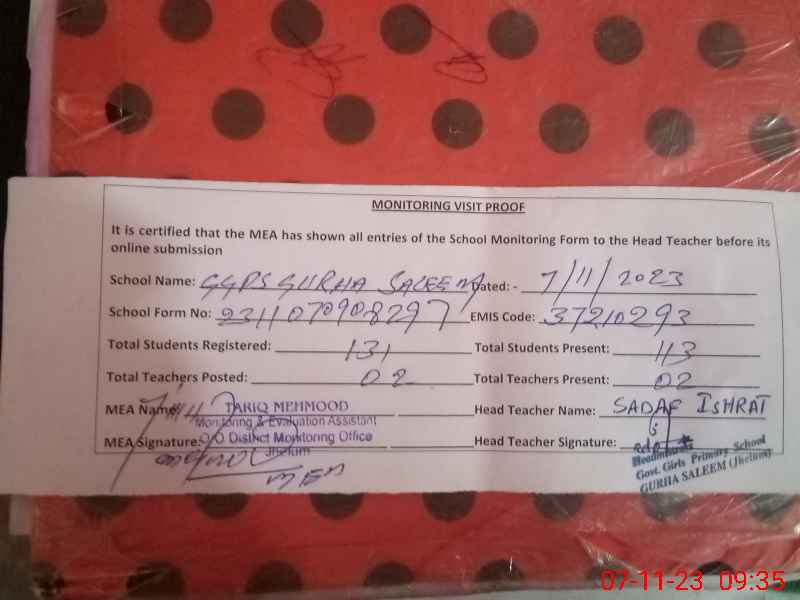 MONITORING VISIT PROOF
It is certified that the MEA has shown all entries of the School Monitoring Form to the Head Teacher before its
online submission
School Name: GGPS GURHA SALEEM Dated: - 7/11/2023
School Form No: 9311070908297 EMIS Code: 37210293
Total Students Registered: 131 Total Students Present: 113
Total Teachers Posted: 02 Total Teachers Present: 02
MEA Name: TARIQ MEHMOOD Head Teacher Name: SADAF IsHRAT
Monitoring & Evaluation Assistant
MEA Signature: O/O District Monitoring Office Head Teacher Signature:
Jhelum
MEA
Headmistress
Govt. Girls Primary School
GURHA SALEEM (Jhelum)
07-11-23 09:35